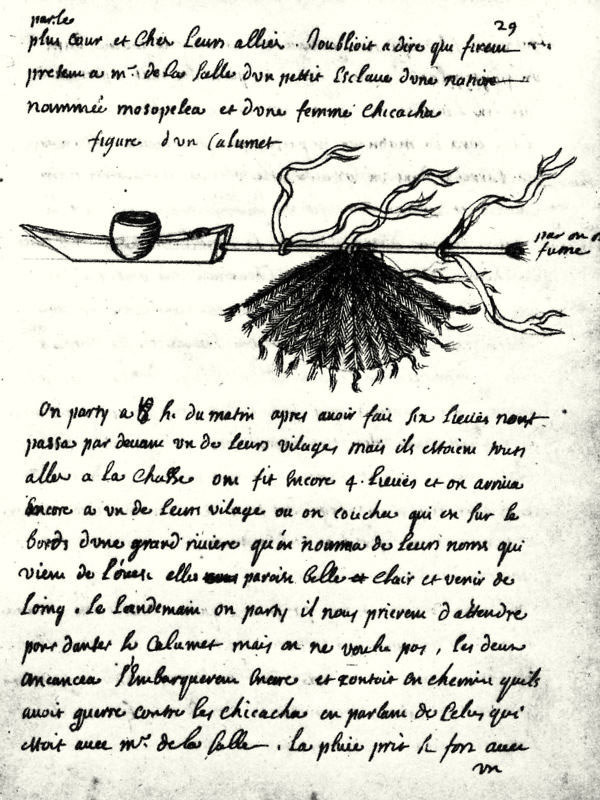 29
par le
plus cour et cher leurs alliez. Joublioit a dire qui firent
present a mr. de la salle dun pettit Esclave dune nation
nommée mosopelea et dune femme chicacha
figure dun Calumet
par on on
fume
On party a h. du matin apres avoir fait six lieuës nous
passa par devant un de leurs vilages mais ils estoient tous
aller a la chasse ont fit encore 4. lieuës et on arriva
Encore a un de leurs vilage ou on coucha qui est sur le
bords dune grand riviere quon nomma de leurs noms qui
vient de l'ouest elle paroist belle et clair et venir de
loing. le landemain on party il nous prierent d'attendre
pour danser le Calumet mais on ne voulu pas, les deux
ancancea s'embarquerent encore et contoit en chemin quils
avoit guerre contre les chicacha en parlant de Celui qui
estoit avec mr. de la salle. la pluie prit si fort avec
un